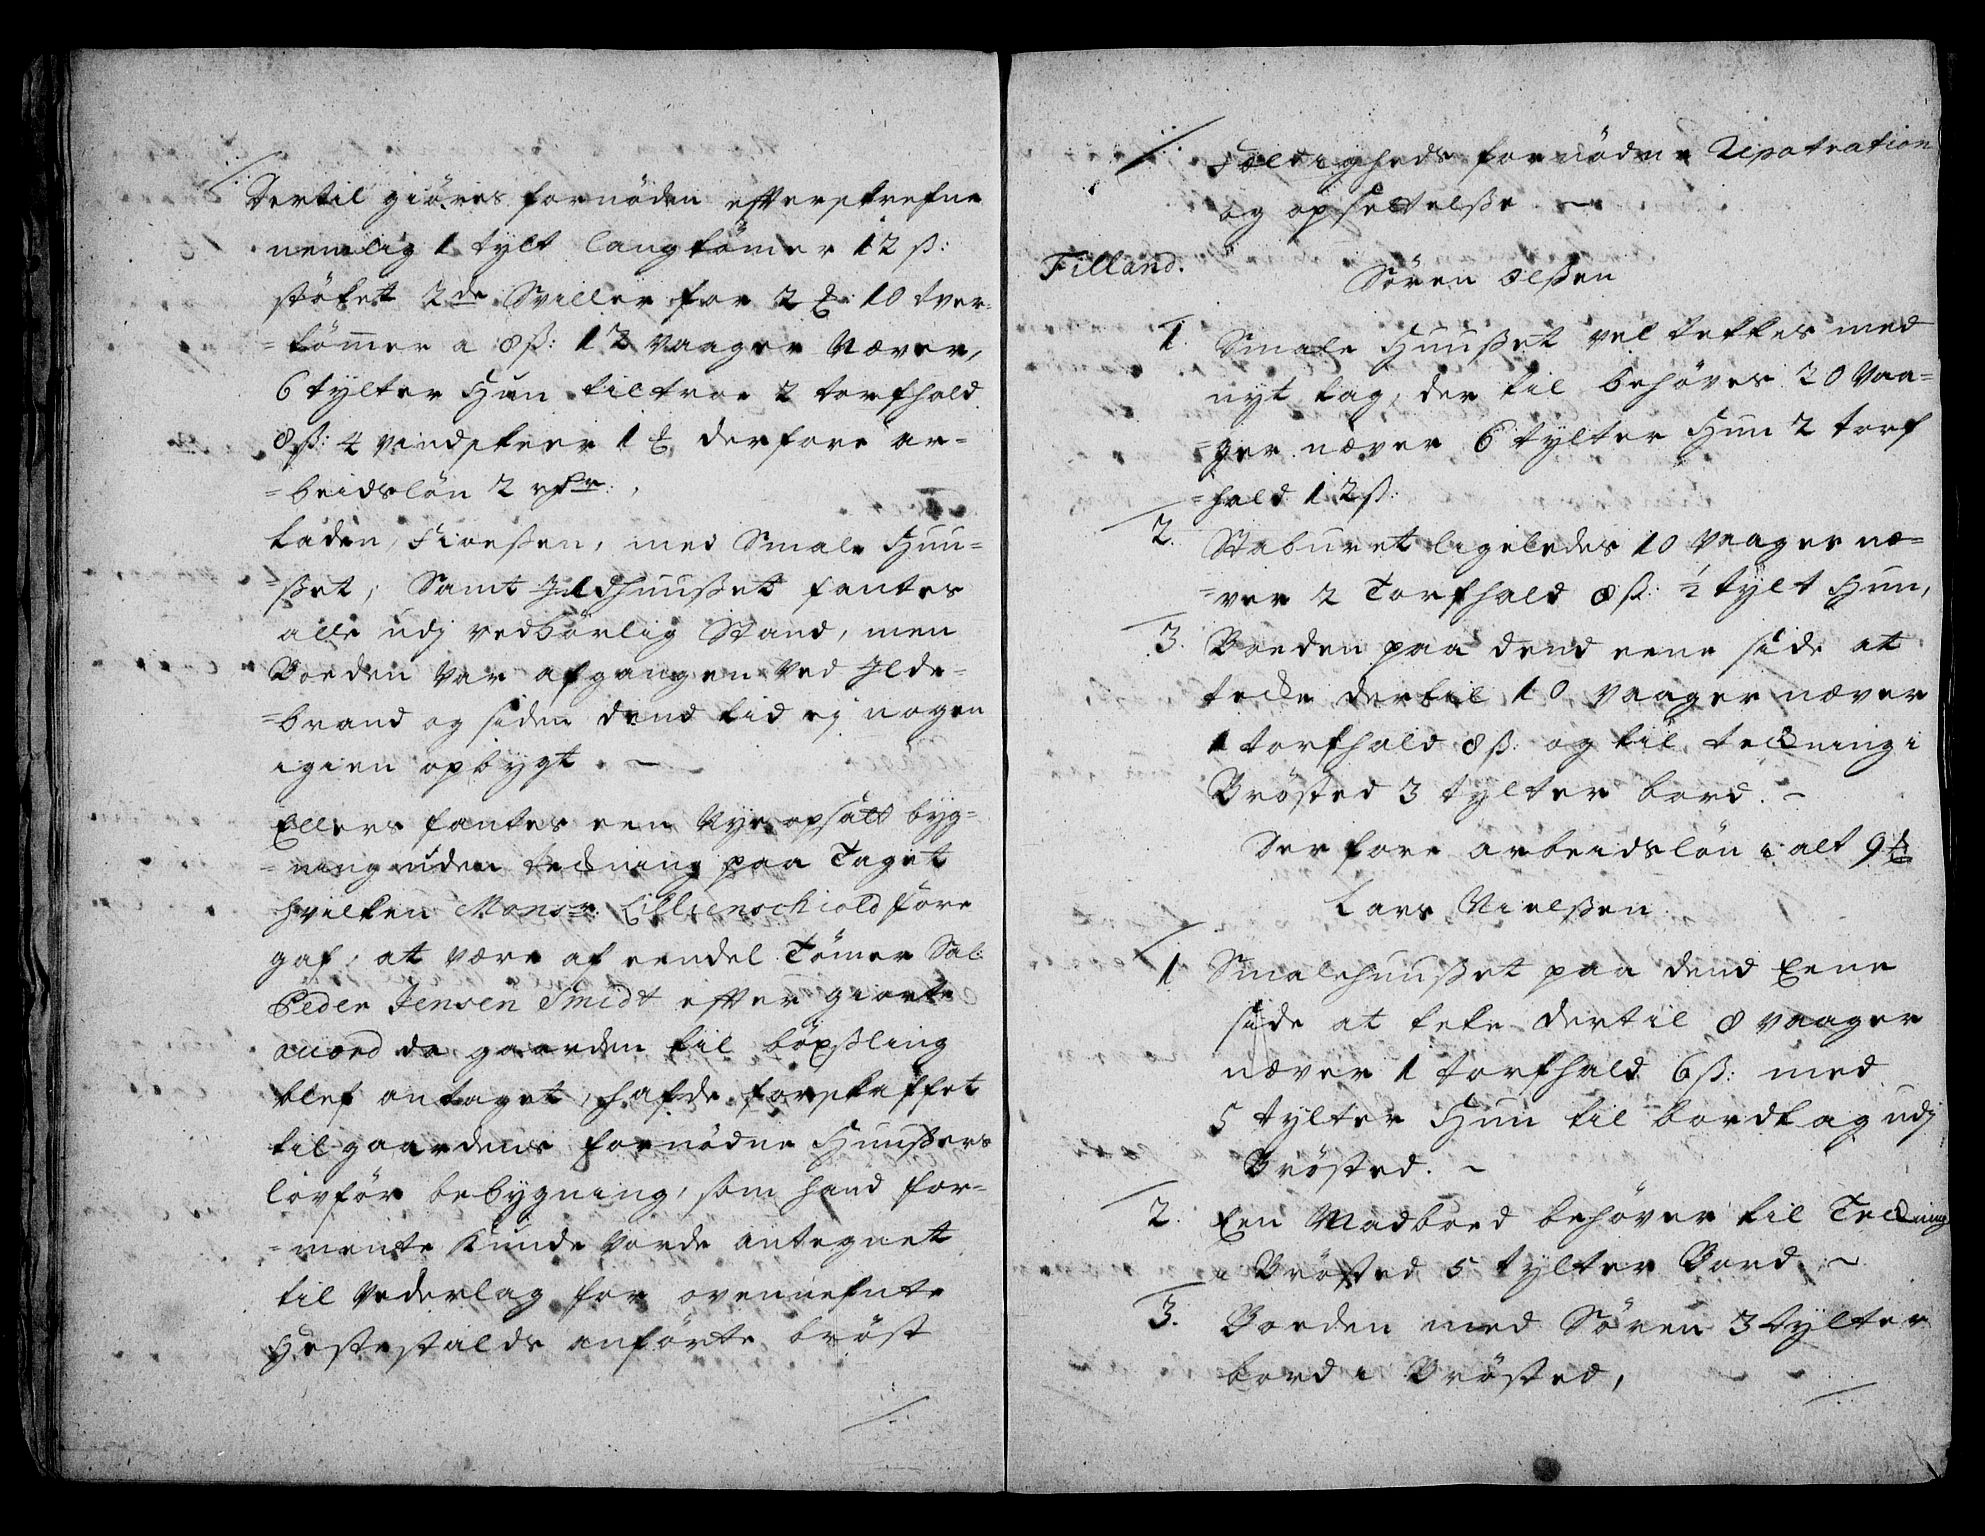 Dertil giøres fornøden efterskrefne
nemlig 1 tylt langtømer 12 ß:
støket 2de Sviller for 2 ꝶ: 10 tver-
=tømmer a 8ß: 12 vaager Næver,
6 tylter Hun til troe 2 torfhald
8ß: 4 vindskeer 1 ꝶ derfore ar-
=beidsløn 2 rdr:,
Laden, Floeßen, med Smale Huu-
=ßet, Samt Jldhuußet fantes
alle udj vedbørlig Stand, men
Boeden var afgangen ved Jlde-
=brand og siden dend tid ej nogen
igien opbygt. ~
Ellers fantes een Nye opsatt byg-
=ning uden teckning paa Taget
hvilken Monsr. Lillienschiold fore
gaf, at være af eendel Tømer Sal:
Peder Jensen Smidt efter giorte
accord da gaarden til böxßling
blef antaget, hafde forskaffet
til gaardens fornødne Huußers
lovfør bebygning, som hand for-
=mente kunde vorde antegnet
til Vederlag for ovennefnte
Hestestalds anførte brøst
fældigheds fornødene Reparation
og opsettelße ~
Filland.
Søren Olßen
1. Smale Huußet vel tekkes med
nyt tag, der til behøves 20 Vaa-
=ger næver 6 tylter Hun 2 torf
=hald 12ß:
2. Staburet ligeledes 10 Vaager næ-
=ver 2 Torfhald 8ß: ½ tylt Hun,
3. Boeden paa dend eene side at
tecke dertil 10 vaager næver
1 torfhald 8ß: og til teckning i
Brøsted 3 tylter bord. ~
Derfore arbeidsløn i alt 9 ꝶ
Lars Nielßen
1 Smalehuußet paa dend Eene
side at teke dertil 8 vaager
næver 1 torfhald 6ß: med
5 tylter Hun til bordtag udj
Brøsted. ~
2. Een Madboed behøver til Teckning
i Brøsted 5 tylter Bord. ~
3. Boeden med Søren 3 tylter
bord i Brøsted,